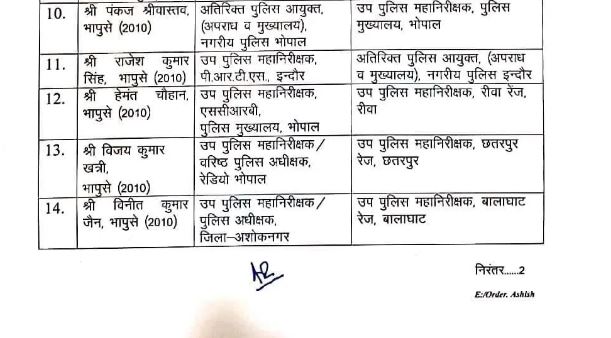 10.
श्री पंकज श्रीवास्तव,
भापुसे (2010)
अतिरिक्त पुलिस आयुक्त,
(अपराध व मुख्यालय),
नगरीय पुलिस भोपाल
उप पुलिस महानिरीक्षक, पुलिस
मुख्यालय, भोपाल
11.
श्री राजेश कुमार
सिंह, भापुसे (2010)
उप पुलिस महानिरीक्षक,
पी.आर.टी.एस., इन्दौर
अतिरिक्त पुलिस आयुक्त, (अपराध
व मुख्यालय), नगरीय पुलिस इन्दौर
12.
श्री हेमंत चौहान,
भापुसे (2010)
उप पुलिस महानिरीक्षक,
एससीआरबी,
पुलिस मुख्यालय, भोपाल
उप पुलिस महानिरीक्षक, रीवा रेंज,
रीवा
13.
श्री विजय कुमार
खत्री,
भापुसे (2010)
उप पुलिस महानिरीक्षक/
वरिष्ठ पुलिस अधीक्षक,
रेडियो भोपाल
उप पुलिस महानिरीक्षक, छतरपुर
रेज, छतरपुर
14.
श्री विनीत कुमार
जैन, भापुसे (2010)
उप पुलिस महानिरीक्षक/
पुलिस अधीक्षक,
जिला–अशोकनगर
उप पुलिस महानिरीक्षक, बालाघाट
रेज, बालाघाट
निरंतर......2
E:/Order. Ashish